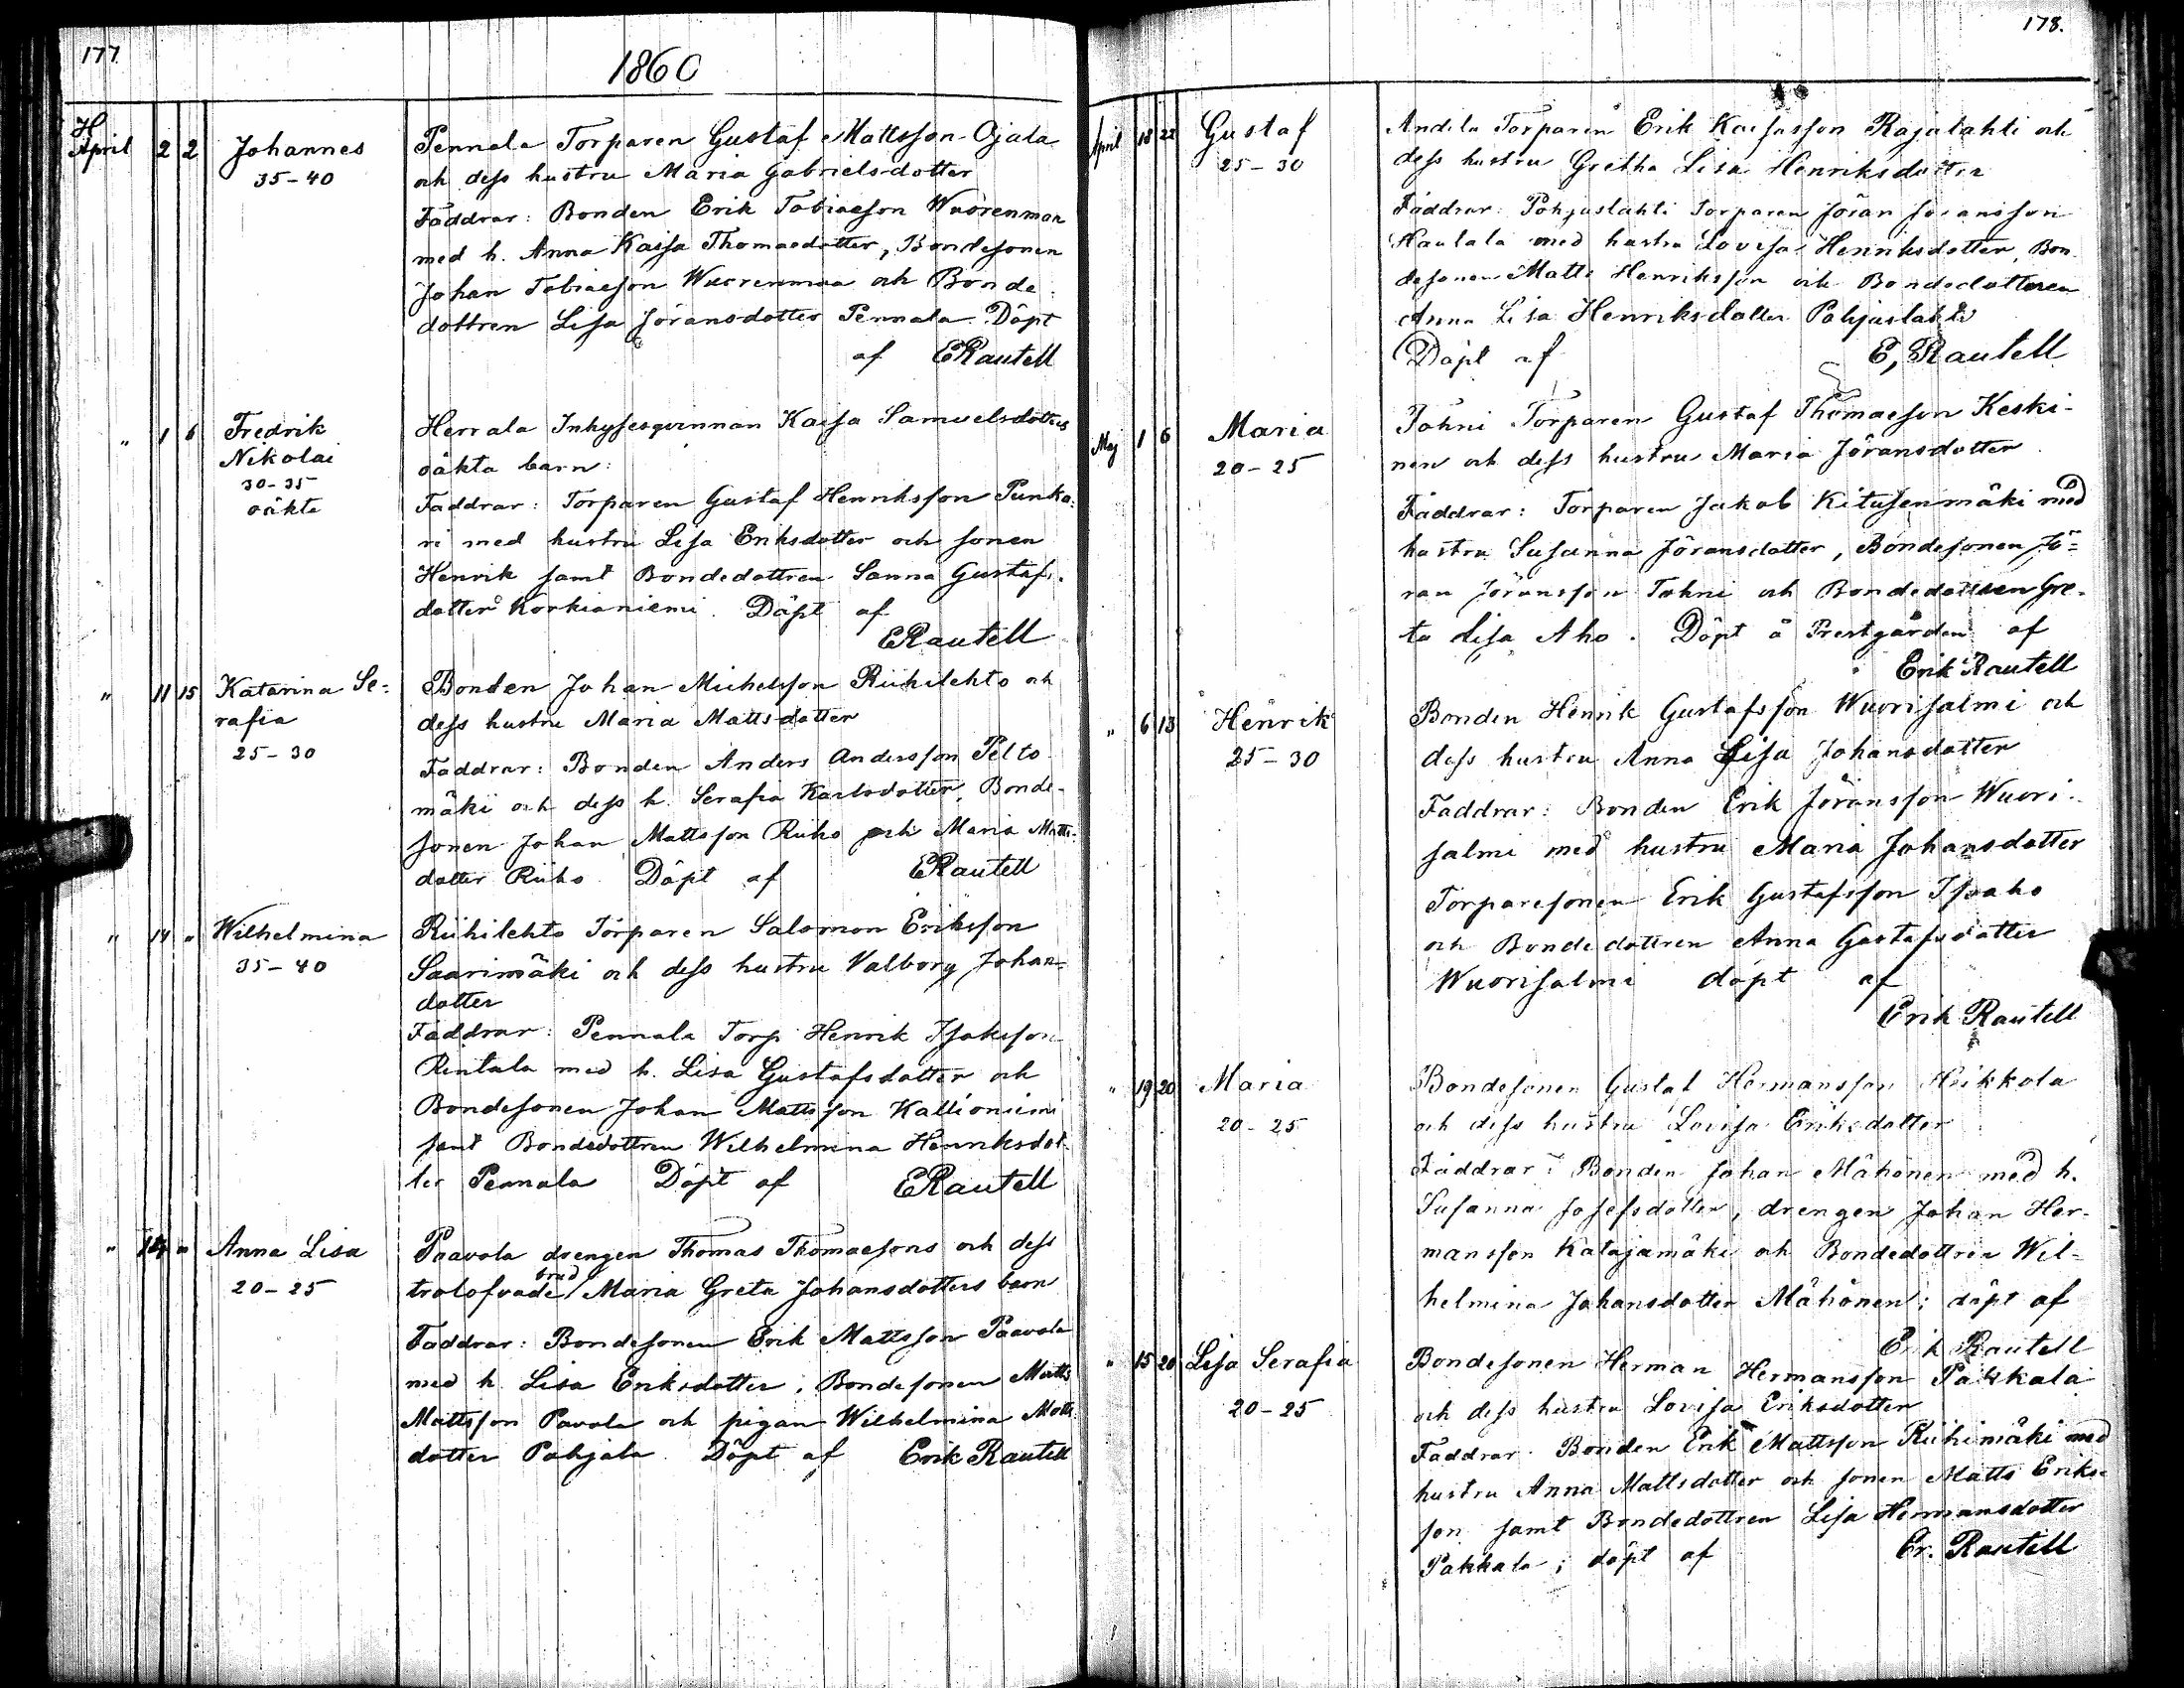 177
1860
H
April 2 2 Johannes
35-40
Pennala Torparen Gustaf Mattsson Ojala
och dess hustru Maria Gabrielsdotter
Faddrar: Bonden Erik Tobiaeson Wuorenmaa
med h. Anna Kaisa Thomaedotter, Bondesonen
Johan Tobiaeson Wuorenmaa och Bonde
dottren Lisa Jöransdotter Pennala. Döpt
af ERautell
" 1 6 Fredrik
Nikolai
30-35
oäkta
Herrala Inhysesqvinnan Kaisa Samuelsdotters
oäkta barn:
Faddrar: Torparen Gustaf Henriksson Punka:
ri med hustru Lisa Eriksdotter och sonen
Henrik samt Bondedottren Sanna Gustafs-
dotter Korkianiemi. Döpt af
ERautell
" 11 15 Katarina Se-
rafia
25-30
Bonden Johan Michelsson Riihilehto och
dess hustru Maria Mattsdotter
Faddrar: Bonden Anders Andersson Pelto
mäki och dess h. Serafia Karlsdotter, Bonde-
sonen Johan Mattsson Riiho och Maria Matts-
dotter Riiho. Döpt af ERautell
" 14 " Wilhelmina
35-40
Riihilehto Torparen Salomon Eriksson
Saarimäki och dess hustru Valborg Johan-
dotter
Faddrar: Pennala Torp. Henrik Isaksson
Rintala med h. Lisa Gustafsdotter och
Bondesonen Johan Mattsson Kallioniemi
samt Bondedottren Wilhelmina Henriksdot-
ter Pennala Döpt af ERautell
" 14 " Anna Lisa
20-25
Paavola drengen Thomas Thomaesons och dess
brud
trolofvade Maria Greta Johansdotters barn
Faddrar: Bondesonen Erik Mattsson Paavola
med h. Lisa Eriksdotter, Bondesonen Matts
Mattsson Pavola och pigan Wilhelmina Matts
dotter Pohjala. Döpt af Erik Rautell
178.
April 18 22 Gustaf
25-30
Andila Torparen Erik Rajalahti och
dess hustru Gretha Lisa Henriksdotter
Faddrar: Pohjaslahti Torparen Jöran Joransson
Haulala med hustru Lovisa Henriksdotter, Bon-
desonen Matts Henriksson och Bondedottren
Anna Lisa Henriksdotter Pohjaslahti
Döpt af E, Rautell
Maj 1 6 Maria
20-25
Tohni Torparen Gustaf Thomaeson Keski-
nen och dess hustru Maria Jöransdotter
Faddrar: Torparen Jakob Kitusenmäki med
hustru Susanna Jöransdotter, Bondesonen Jö=
ran Jöransson Tohni och Bondedottren Gre-
ta Lisa Aho. Döpt å Prestgården af
Erik Rautell
" 6 13 Henrik
25-30
Bonden Henrik Gustafsson Wuorisalmi och
dess hustru Anna Lisa Johansdotter
Faddrar: Bonden Erik Jöransson Wuori-
salmi med hustru Maria Johansdotter
Torparesonen Erik Gustafsson Isoaho
och Bondedottren Anna Gustafsdotter
Wuorisalmi döpt af
Erik Rautell
" 19 20 Maria
20-25
Bondesonen Gustaf Hermansson Heikkola
och dess hustru Lovisa Eriksdotter
Faddrar: Bonden Johan Mähönen med h.
Susanna Josefsdotter, drengen Johan Her-
mansson Katajamäki och Bondedottren Wil-
helmina Johansdotter Mähönen; döpt af
Erik Rautell
" 15 20 Lisa Serafia
20-25
Bondesonen Herman Hermansson Pakkala
och dess hustru Lovisa Eriksdotter
Faddrar: Bonden Erik Mattsson Riihimäki med
hustru Anna Mattsdotter och sonen Matts Eriks-
son samt Bondedottren Lisa Hermansdotter
Pakkala; döpt af Er. Rautell